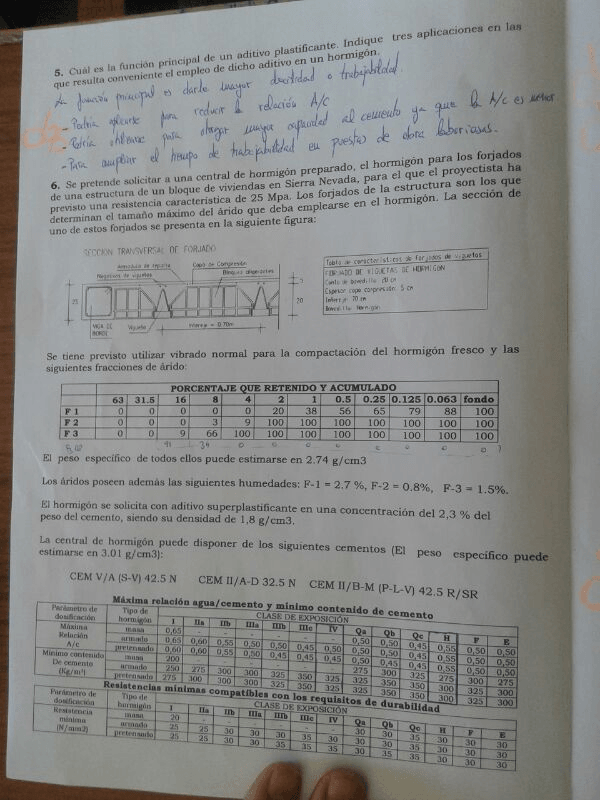 5. Cuál es la función principal de un aditivo plastificante. Indique tres aplicaciones en las
que resulta conveniente el empleo de dicho aditivo en un hormigón.
La función principal es darle mayor docilidad o trabajabilidad.
- Podría aplicarse para reducir la relación A/c
- Podría utilizarse para otorgar mayor capacidad al cemento ya que la A/c es menor
- Para ampliar el tiempo de trabajabilidad en puestas de obra laboriosas.
6. Se pretende solicitar a una central de hormigón preparado, el hormigón para los forjados
de una estructura de un bloque de viviendas en Sierra Nevada, para el que el proyectista ha
previsto una resistencia característica de 25 Mpa. Los forjados de la estructura son los que
determinan el tamaño máximo del árido que deba emplearse en el hormigón. La sección de
uno de estos forjados se presenta en la siguiente figura:
SECCION TRANSVERSAL DE FORJADO
Armadura de reparto Capa de Compresión
Negativos de viguetas Bloques aligerantes
25 5 20
VIGA DE BORDE Vigueta Intereje = 0.70m
Tabla de características de forjados de viguetas
FORJADO DE VIGUETAS DE HORMIGON
Canto de bovedilla: 20 cm
Espesor capa compresión: 5 cm
Intereje: 70 cm
Bovedilla: Hormigón
Se tiene previsto utilizar vibrado normal para la compactación del hormigón fresco y las
siguientes fracciones de árido:
PORCENTAJE QUE RETENIDO Y ACUMULADO
63 31.5 16 8 4 2 1 0.5 0.25 0.125 0.063 fondo
F 1 0 0 0 0 0 20 38 56 65 79 88 100
F 2 0 0 0 3 9 100 100 100 100 100 100 100
F 3 0 0 9 66 100 100 100 100 100 100 100 100
91 34 0 0 0 0 0 0 0
El peso específico de todos ellos puede estimarse en 2.74 g/cm3
Los áridos poseen además las siguientes humedades: F-1 = 2.7 %, F-2 = 0.8%, F-3 = 1.5%.
El hormigón se solicita con aditivo superplastificante en una concentración del 2,3 % del
peso del cemento, siendo su densidad de 1,8 g/cm3.
La central de hormigón puede disponer de los siguientes cementos (El peso específico puede
estimarse en 3.01 g/cm3):
CEM V/A (S-V) 42.5 N CEM II/A-D 32.5 N CEM II/B-M (P-L-V) 42.5 R/SR
Máxima relación agua/cemento y mínimo contenido de cemento
Parámetro de dosificación Tipo de hormigón CLASE DE EXPOSICIÓN
I IIa IIb IIIa IIIb IIIc IV Qa Qb Qc H F E
Máxima Relación A/c
masa 0,65 - - - - - - 0,50 0,50 0,45 0,55 0,50 0,50
armado 0,65 0,60 0,55 0,50 0,50 0,45 0,50 0,50 0,50 0,45 0,55 0,50 0,50
pretensado 0,60 0,60 0,55 0,50 0,45 0,45 0,45 0,50 0,45 0,45 0,55 0,50 0,50
Mínimo contenido De cemento (Kg/m³)
masa 200 - - - - - - 275 300 325 275 300 275
armado 250 275 300 300 325 350 325 325 350 350 300 325 300
pretensado 275 300 300 300 325 350 325 325 350 350 300 325 300
Resistencias mínimas compatibles con los requisitos de durabilidad
Parámetro de dosificación Tipo de hormigón CLASE DE EXPOSICIÓN
I IIa IIb IIIa IIIb IIIc IV Qa Qb Qc H F E
Resistencia mínima (N/mm2)
masa 20 - - - - - - 30 30 35 30 30 30
armado 25 25 30 30 30 35 30 30 30 35 30 30 30
pretensado 25 25 30 30 35 35 35 30 35 35 30 30 30